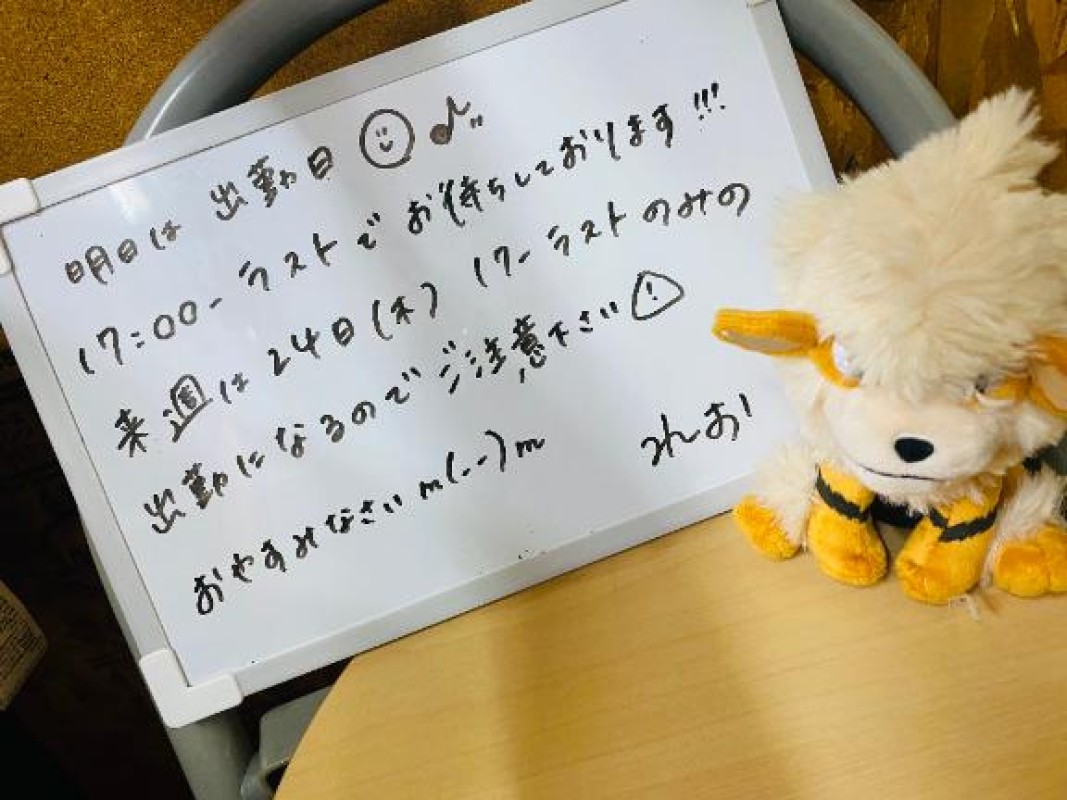 明日は 出勤日 ☺♪
17:00-ラストでお待ちしております!!!
来週は 24日(木) 17-ラストのみの
出勤になるのでご注意下さい⚠
おやすみなさいm(--)m
れんおい